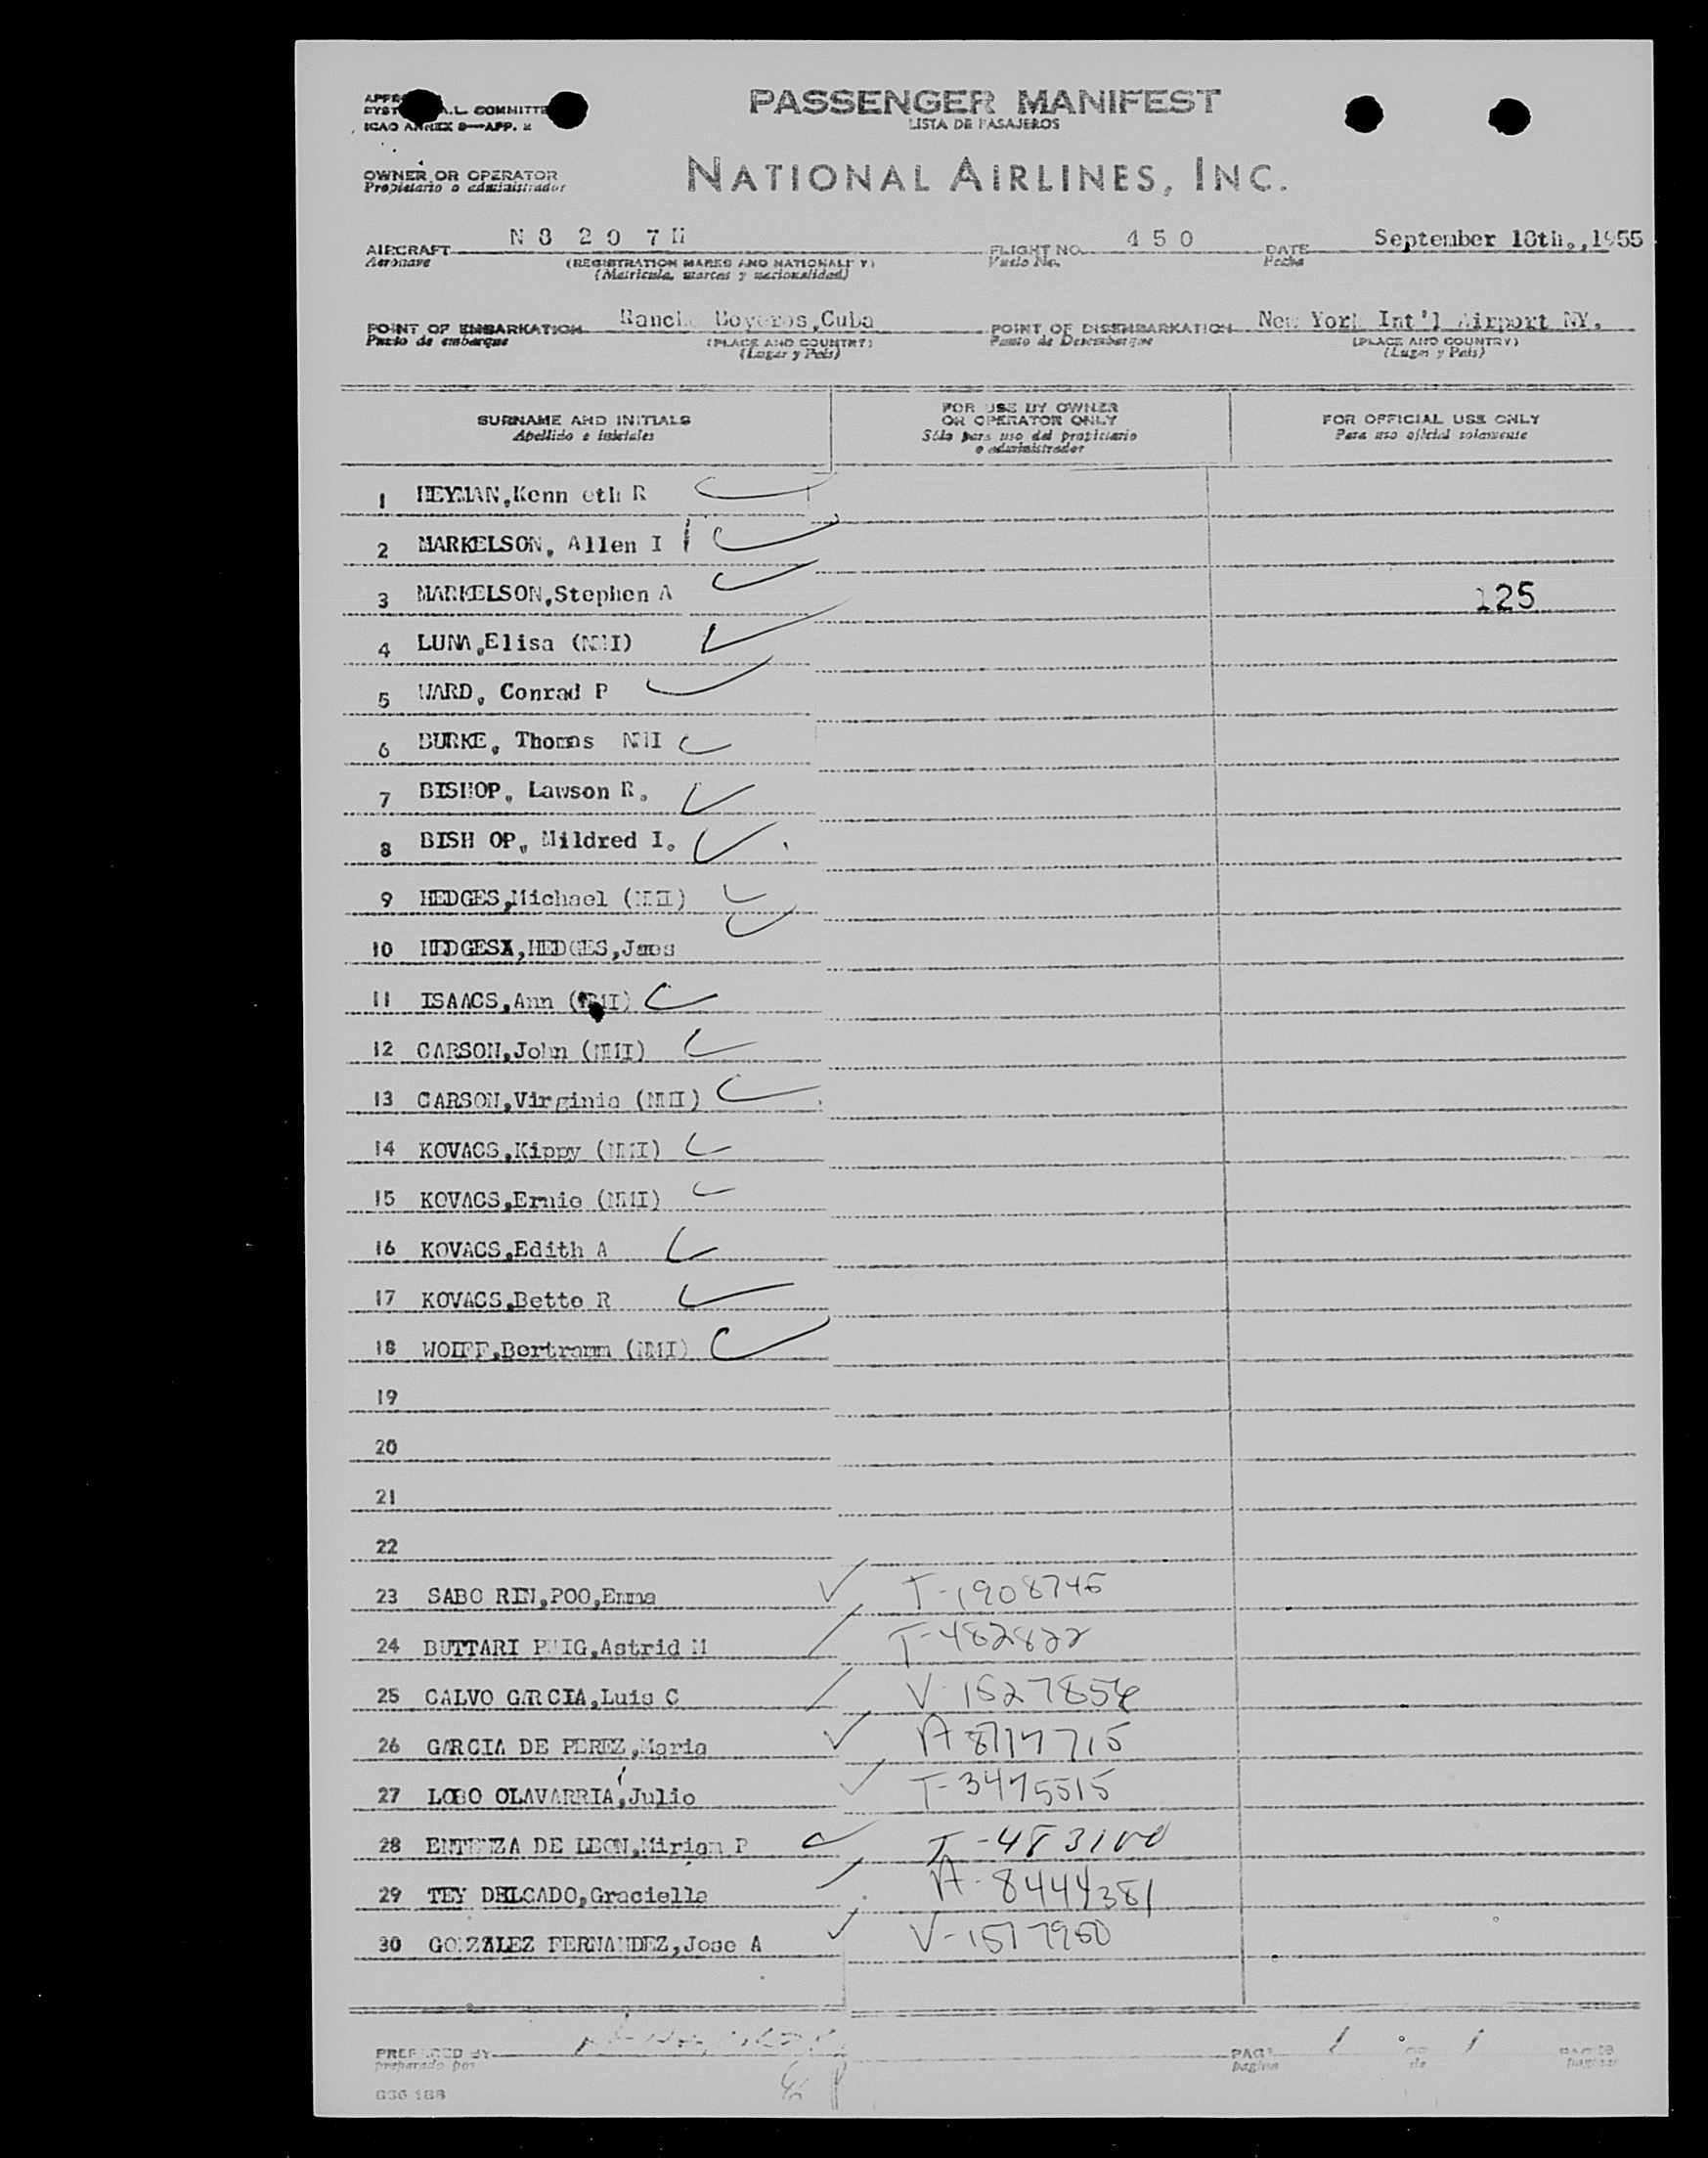 PASSENGER MANIFEST
LISTA DE PASAJEROS
COMMITTE
ICAO ANNEX 9—APP. 2
OWNER OR OPERATOR
Propietario o administrador
NATIONAL AIRLINES, INC.
AIRCRAFT N 8 2 0 7 H FLIGHT NO. 4 5 0 DATE September 18th.,1955
Aeronave (REGISTRATION MARKS AND NATIONALITY) Vuelo No. Fecha
(Matricula, marcas y nacionalidad)
POINT OF EMBARKATION Rancho Boyeros,Cuba POINT OF DISEMBARKATION New York Int'l Airport NY.
Punto de embarque (PLACE AND COUNTRY) Punto de Desembarque (PLACE AND COUNTRY)
(Lugar y País) (Lugar y País)
SURNAME AND INITIALS
Apellido e iniciales
FOR USE BY OWNER
OR OPERATOR ONLY
Sólo para uso del propietario
o administrador
FOR OFFICIAL USE ONLY
Para uso oficial solamente
1 HEYMAN,Kenn eth R
2 MARKELSON, Allen I
3 MARKELSON,Stephen A 125
4 LUNA,Elisa (NMI)
5 WARD, Conrad P
6 BURKE, Thomas NMI
7 BISHOP, Lawson R.
8 BISH OP, Mildred I.
9 HEDGES,Michael (NMI)
10 HEDGESX,HEDGES,James
11 ISAACS,Ann (NMI)
12 CARSON,John (NMI)
13 CARSON,Virginia (NMI)
14 KOVACS,Kippy (NMI)
15 KOVACS,Ernie (NMI)
16 KOVACS,Edith A
17 KOVACS,Bette R
18 WOLFF,Bertramm (NMI)
19
20
21
22
23 SABO RIN,POO,Emma T-1908746
24 BUTTARI PUIG,Astrid M T-482822
25 CALVO GARCIA,Luis C V-1527856
26 GARCIA DE PEREZ,Maria A 8717715
27 LOBO OLAVARRIA,Julio T-3475515
28 ENTENZA DE LEON,Miriam P T-483100
29 TEY DELGADO,Graciella A-8444381
30 GONZALEZ FERNANDEZ,Jose A V-1517950
PREPARED BY PAGE 1 OF 1 PAGES
preparado por pagina de paginas
G36 188